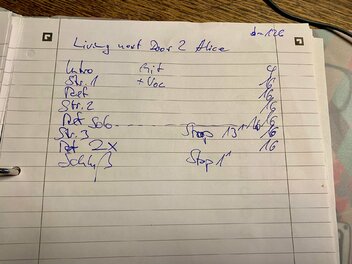 d=126
Living next Door 2 Alice
Intro Git 4
Str. 1 + Voc 16
Ref 16
Str. 2 16
Ref Solo 16 16
Str. 3 Stop 13 16
Ref 2x 16
Schluß Stop 1